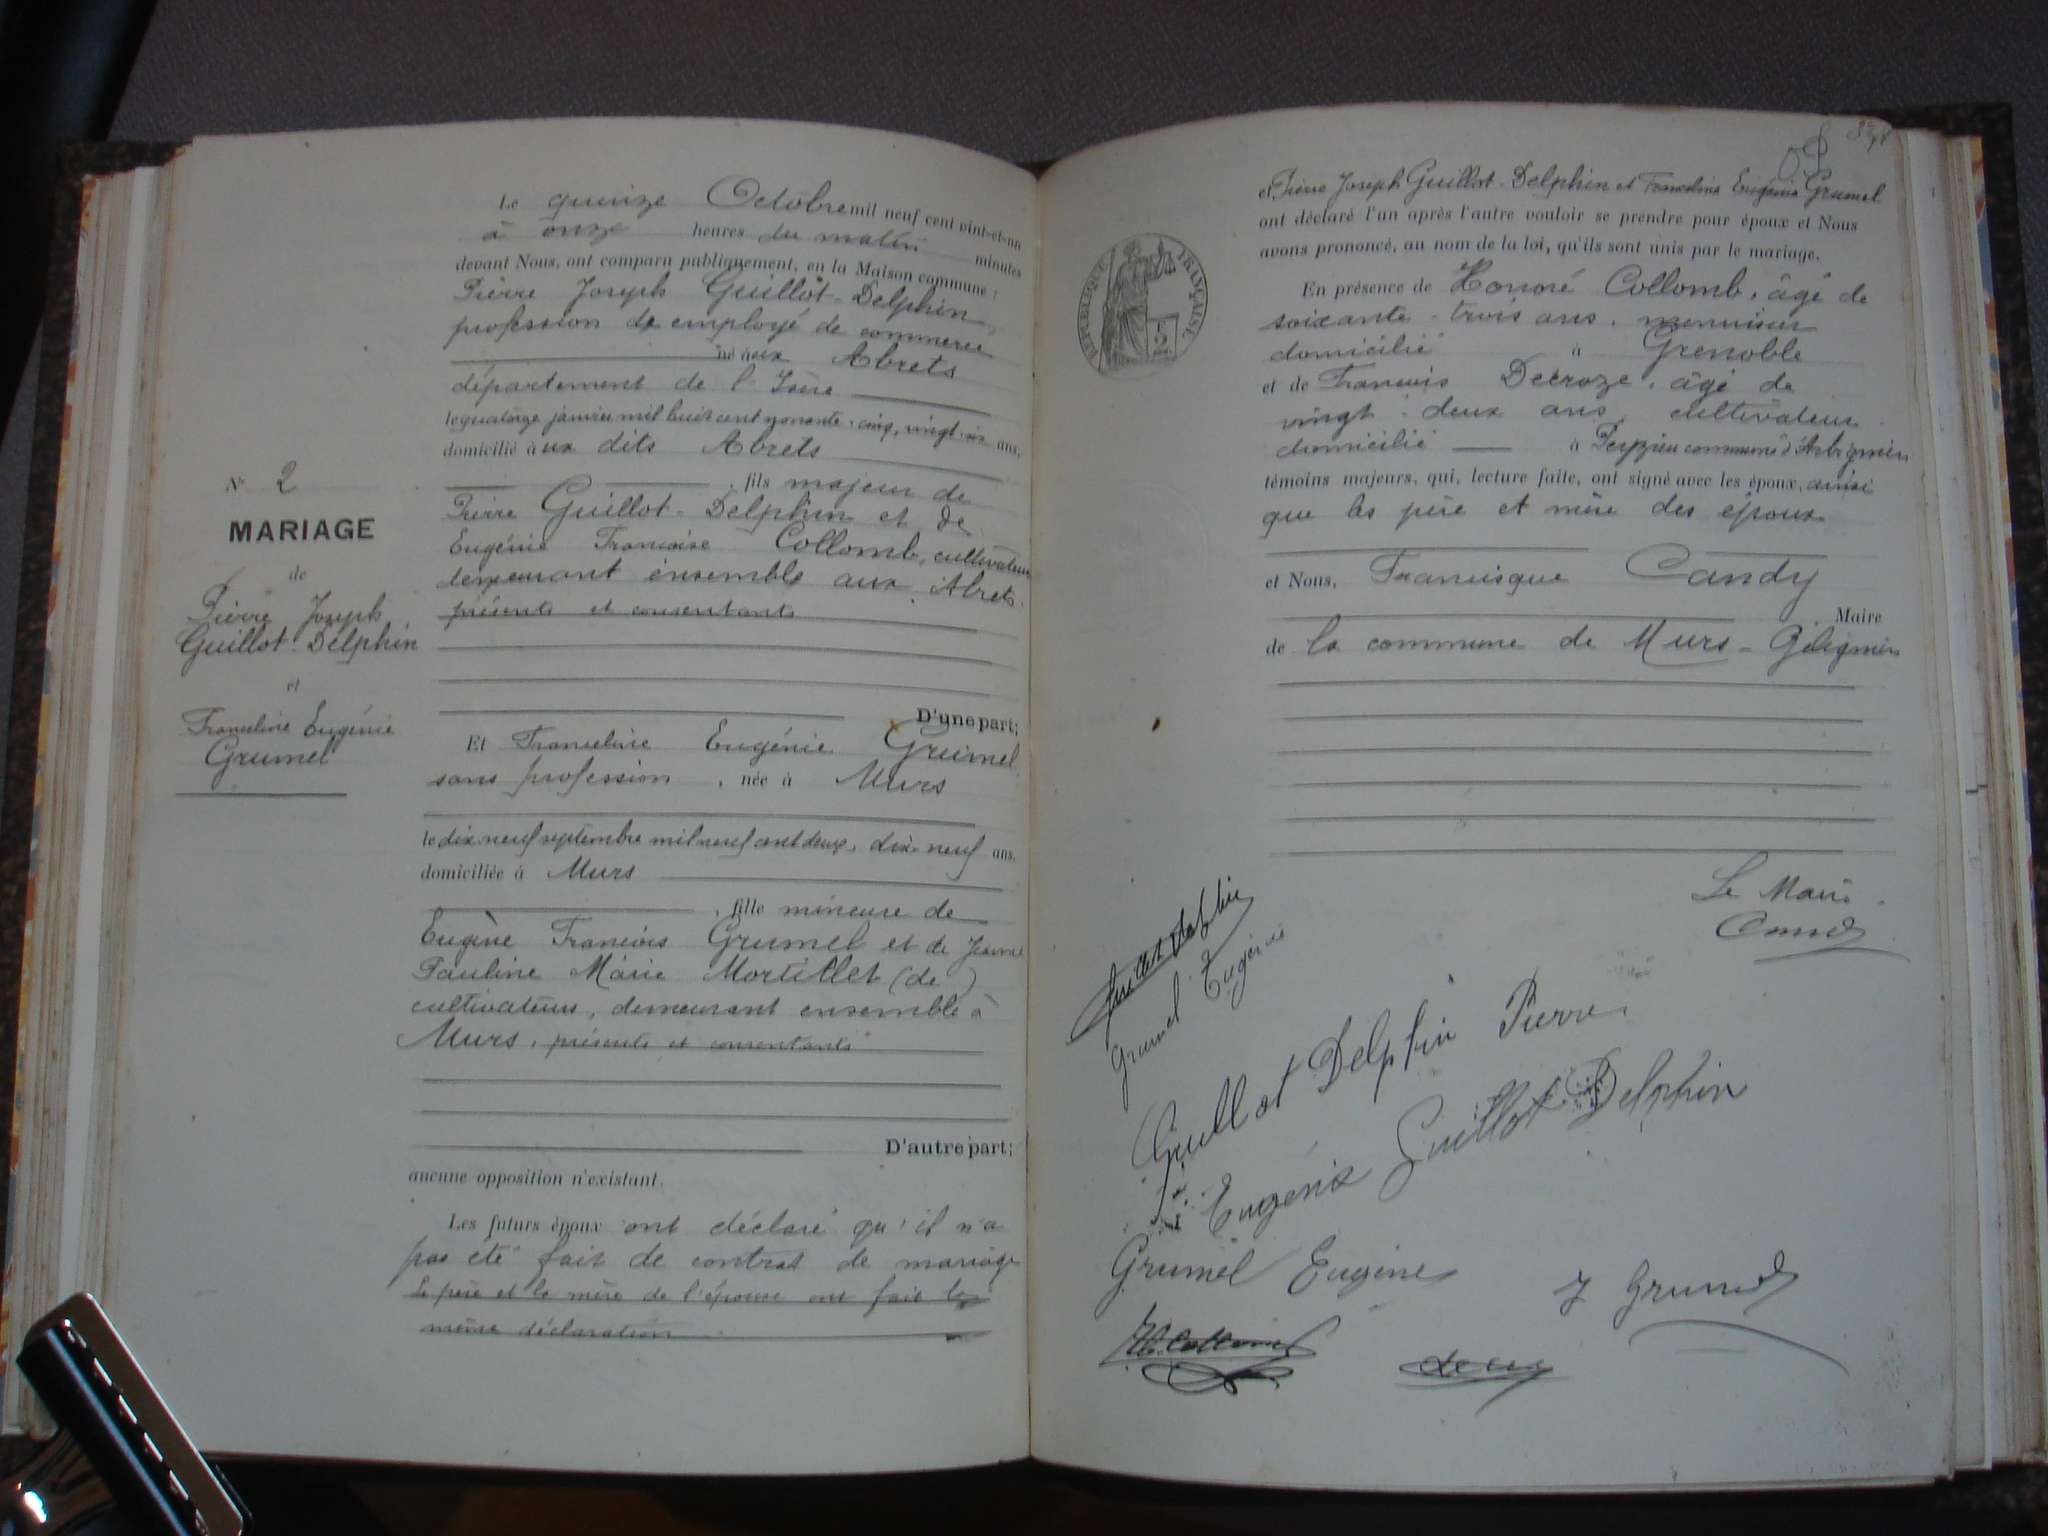 N° 2
MARIAGE
de
Pierre Joseph
Guillot-Delphin
et
Franceline Eugénie
Grumel
Le quinze Octobre mil neuf cent vint-et-un
à onze heures du matin minutes
devant Nous, ont comparu publiquement, en la Maison commune :
Pierre Joseph Guillot-Delphin,
profession de employé de commerce
né aux Abrets
département de l'Isère
le quatorze janvier mil huit cent nonante-cinq, vingt-six ans,
domicilié à ux dits Abrets
, fils majeur de
Pierre Guillot-Delphin et de
Eugénie Francoise Collomb, cultivateurs
demeurant ensemble aux Abrets.
présents et consentants
D'une part;
Et Franceline Eugénie Grumel
sans profession , née à Murs
le dix-neuf septembre mil neuf cent deux, dix-neuf ans.
domiciliée à Murs
, fille mineure de
Eugène Francois Grumel et de Jeanne
Pauline Marie Mortillet (de)
cultivateurs, demeurant ensemble à
Murs, présents et consentants
D'autre part;
aucune opposition n'existant.
Les futurs époux ont déclaré qu'il n'a
pas été fait de contrat de mariage
Le père et la mère de l'épouse ont fait la
même déclaration
RÉPUBLIQUE FRANÇAISE
2
et Pierre Joseph Guillot-Delphin et Francelina Eugénie Grumel
ont déclaré l'un après l'autre vouloir se prendre pour époux et Nous
avons prononcé, au nom de la loi, qu'ils sont unis par le mariage.
En présence de Honoré Collomb, âgé de
soixante-trois ans, menuisier
domicilié à Grenoble
et de Francois Decroze, âgé de
vingt-deux ans, cultivateur
domicilié à Peyzieu commune d'Arbignieu
témoins majeurs, qui, lecture faite, ont signé avec les époux, ainsi
que les père et mère des époux
et Nous, Francisque Candy
Maire
de la commune de Murs-Gélignieux
Le Maire
Candy
Guillot Delphin
Grumel Eugénie
Guillot Delphin Pierre
Eugénie Guillot Delphin
Grumel Eugène J Grumel
H. Collomb